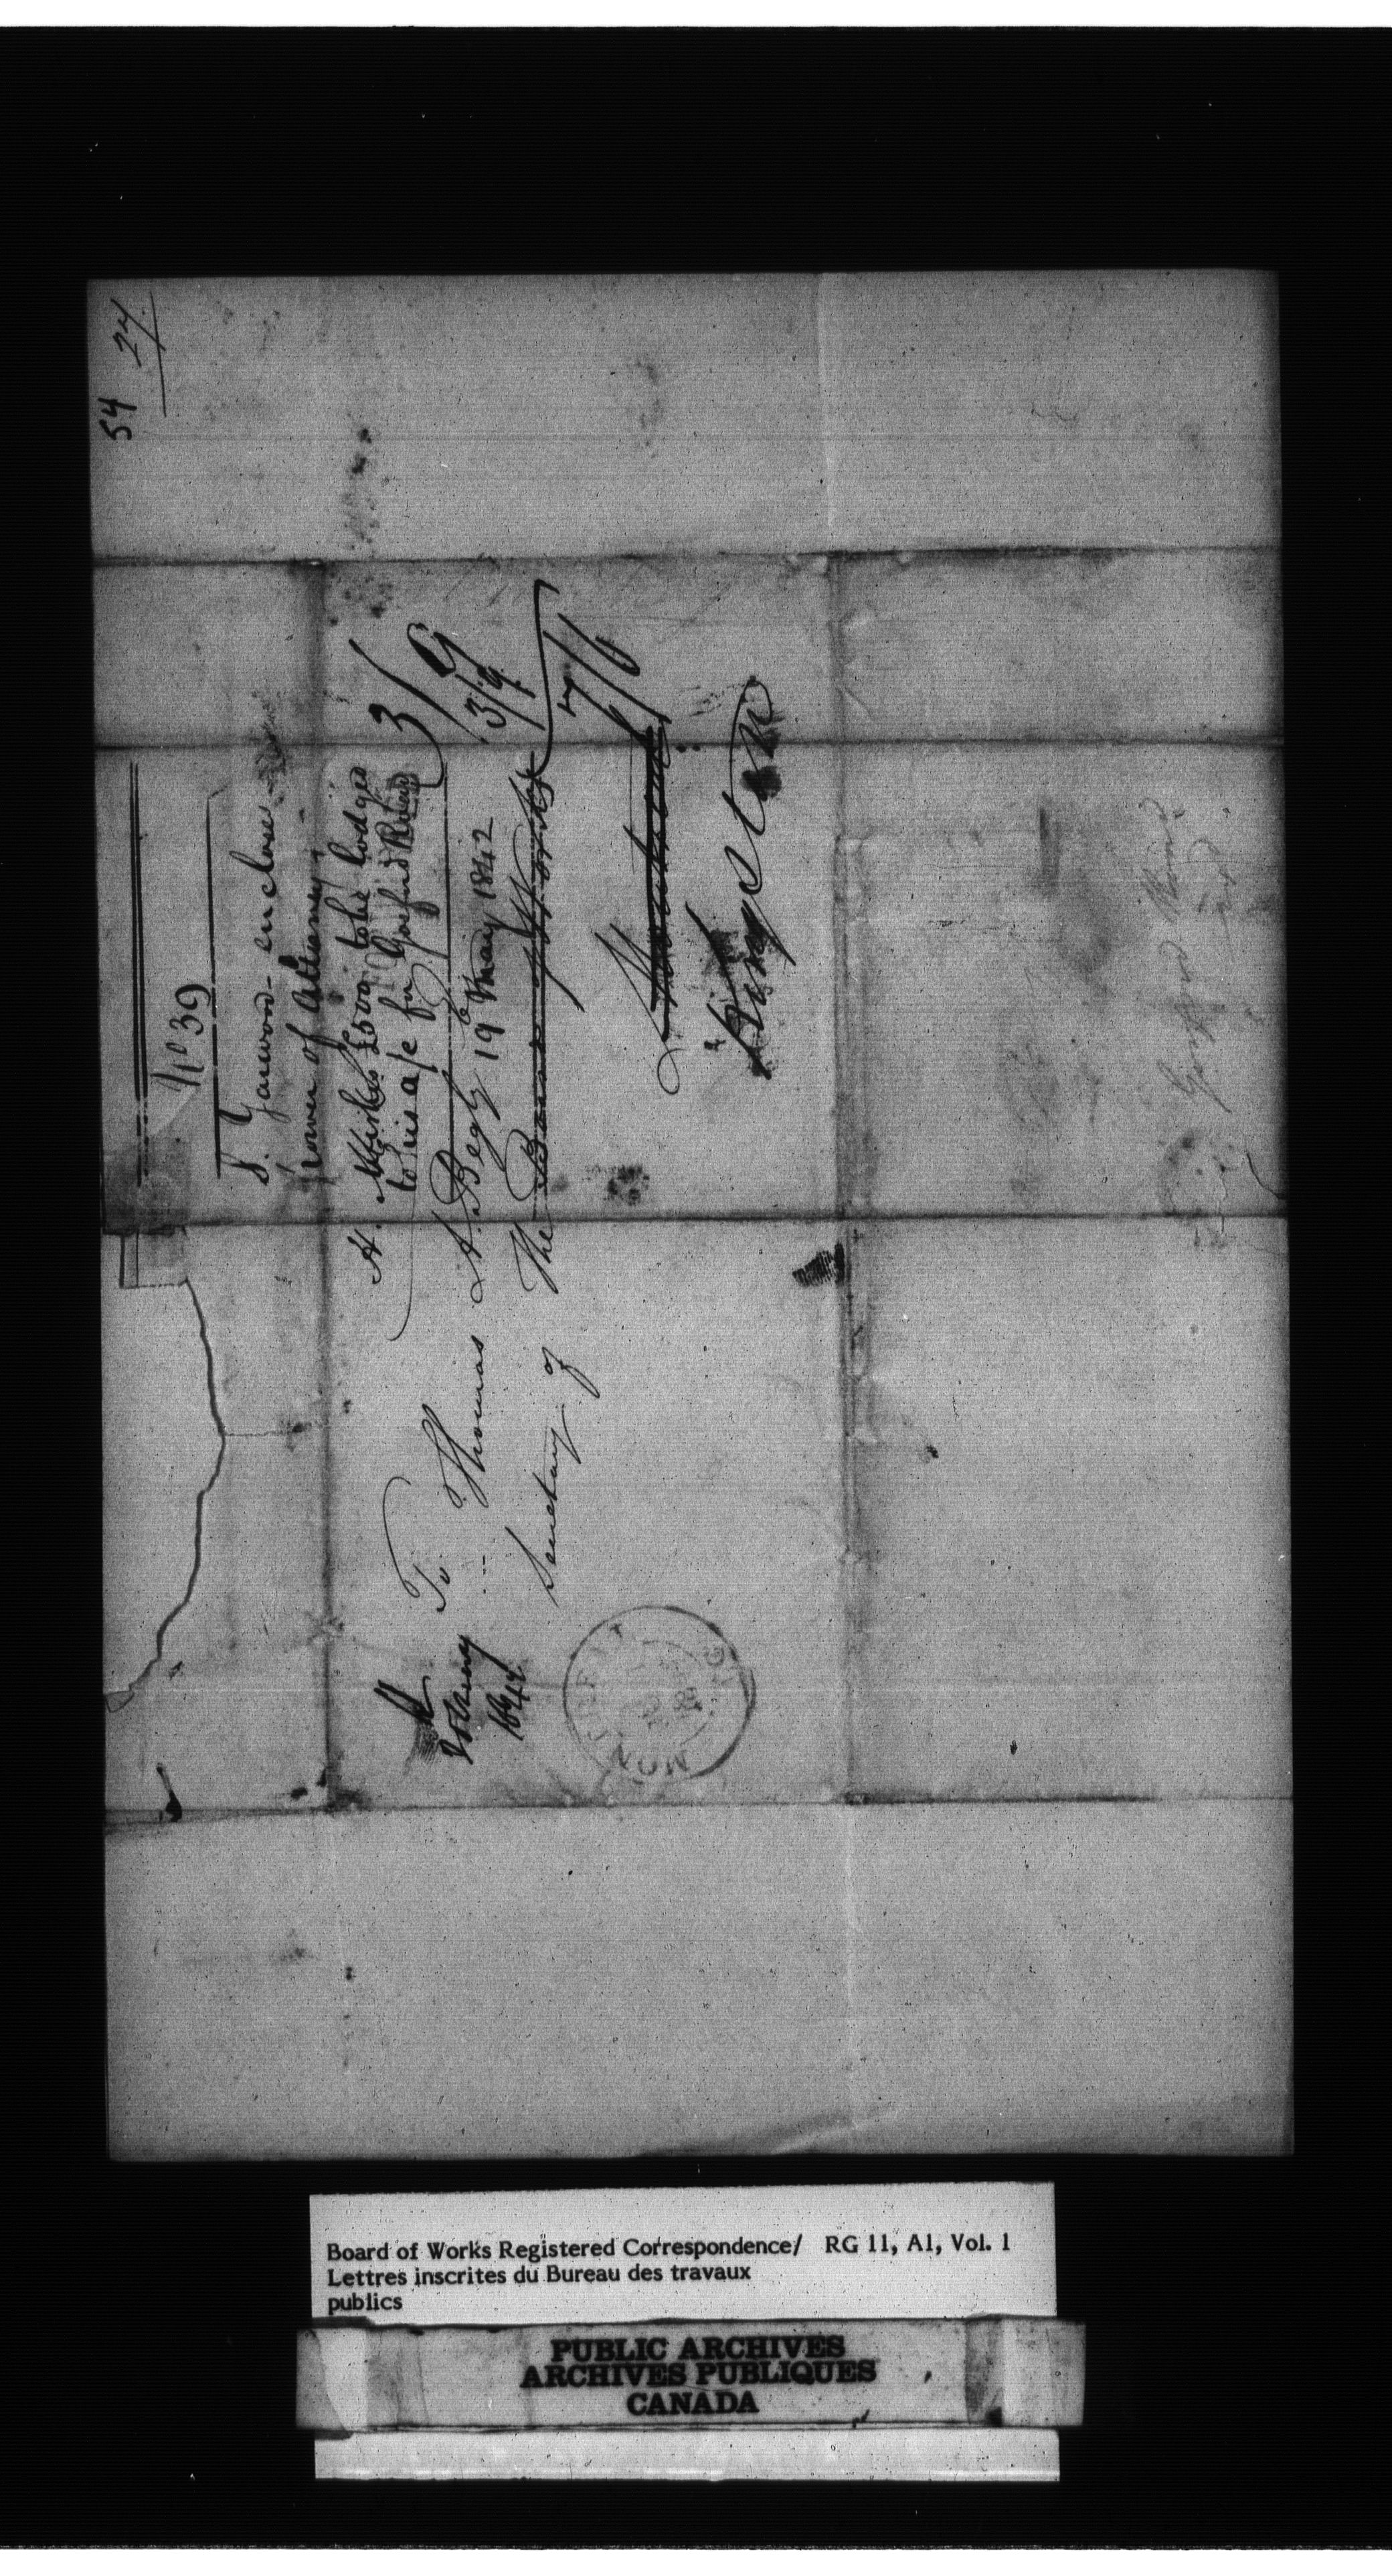 54
27
No 39
S. Yarwood - enclose
Power of Attorney,
H. wishes £500 to be lodged
to his a/c for
3/9
To Thomas A. Begly
19 May 1842
3/9
Secretary of The Board of Works
7/6
Montreal
Kingston
20 May
1842
MONTREAL
Board of Works Registered Correspondence/ RG 11, A1, Vol. 1
Lettres inscrites du Bureau des travaux
publics
PUBLIC ARCHIVES
ARCHIVES PUBLIQUES
CANADA